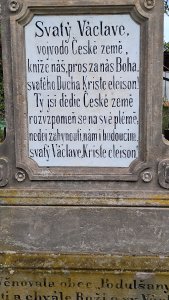 Svatý Václave,
vojvodo České země,
kníže náš, pros za nás Boha,
svatého Ducha Kriste eleison!
Ty jsi dědic České země
rozvzpomeň se na své plémě,
nedej zahynouti nám i budoucím,
svatý Václave, Kriste eleison!
obec
a chvále Boží